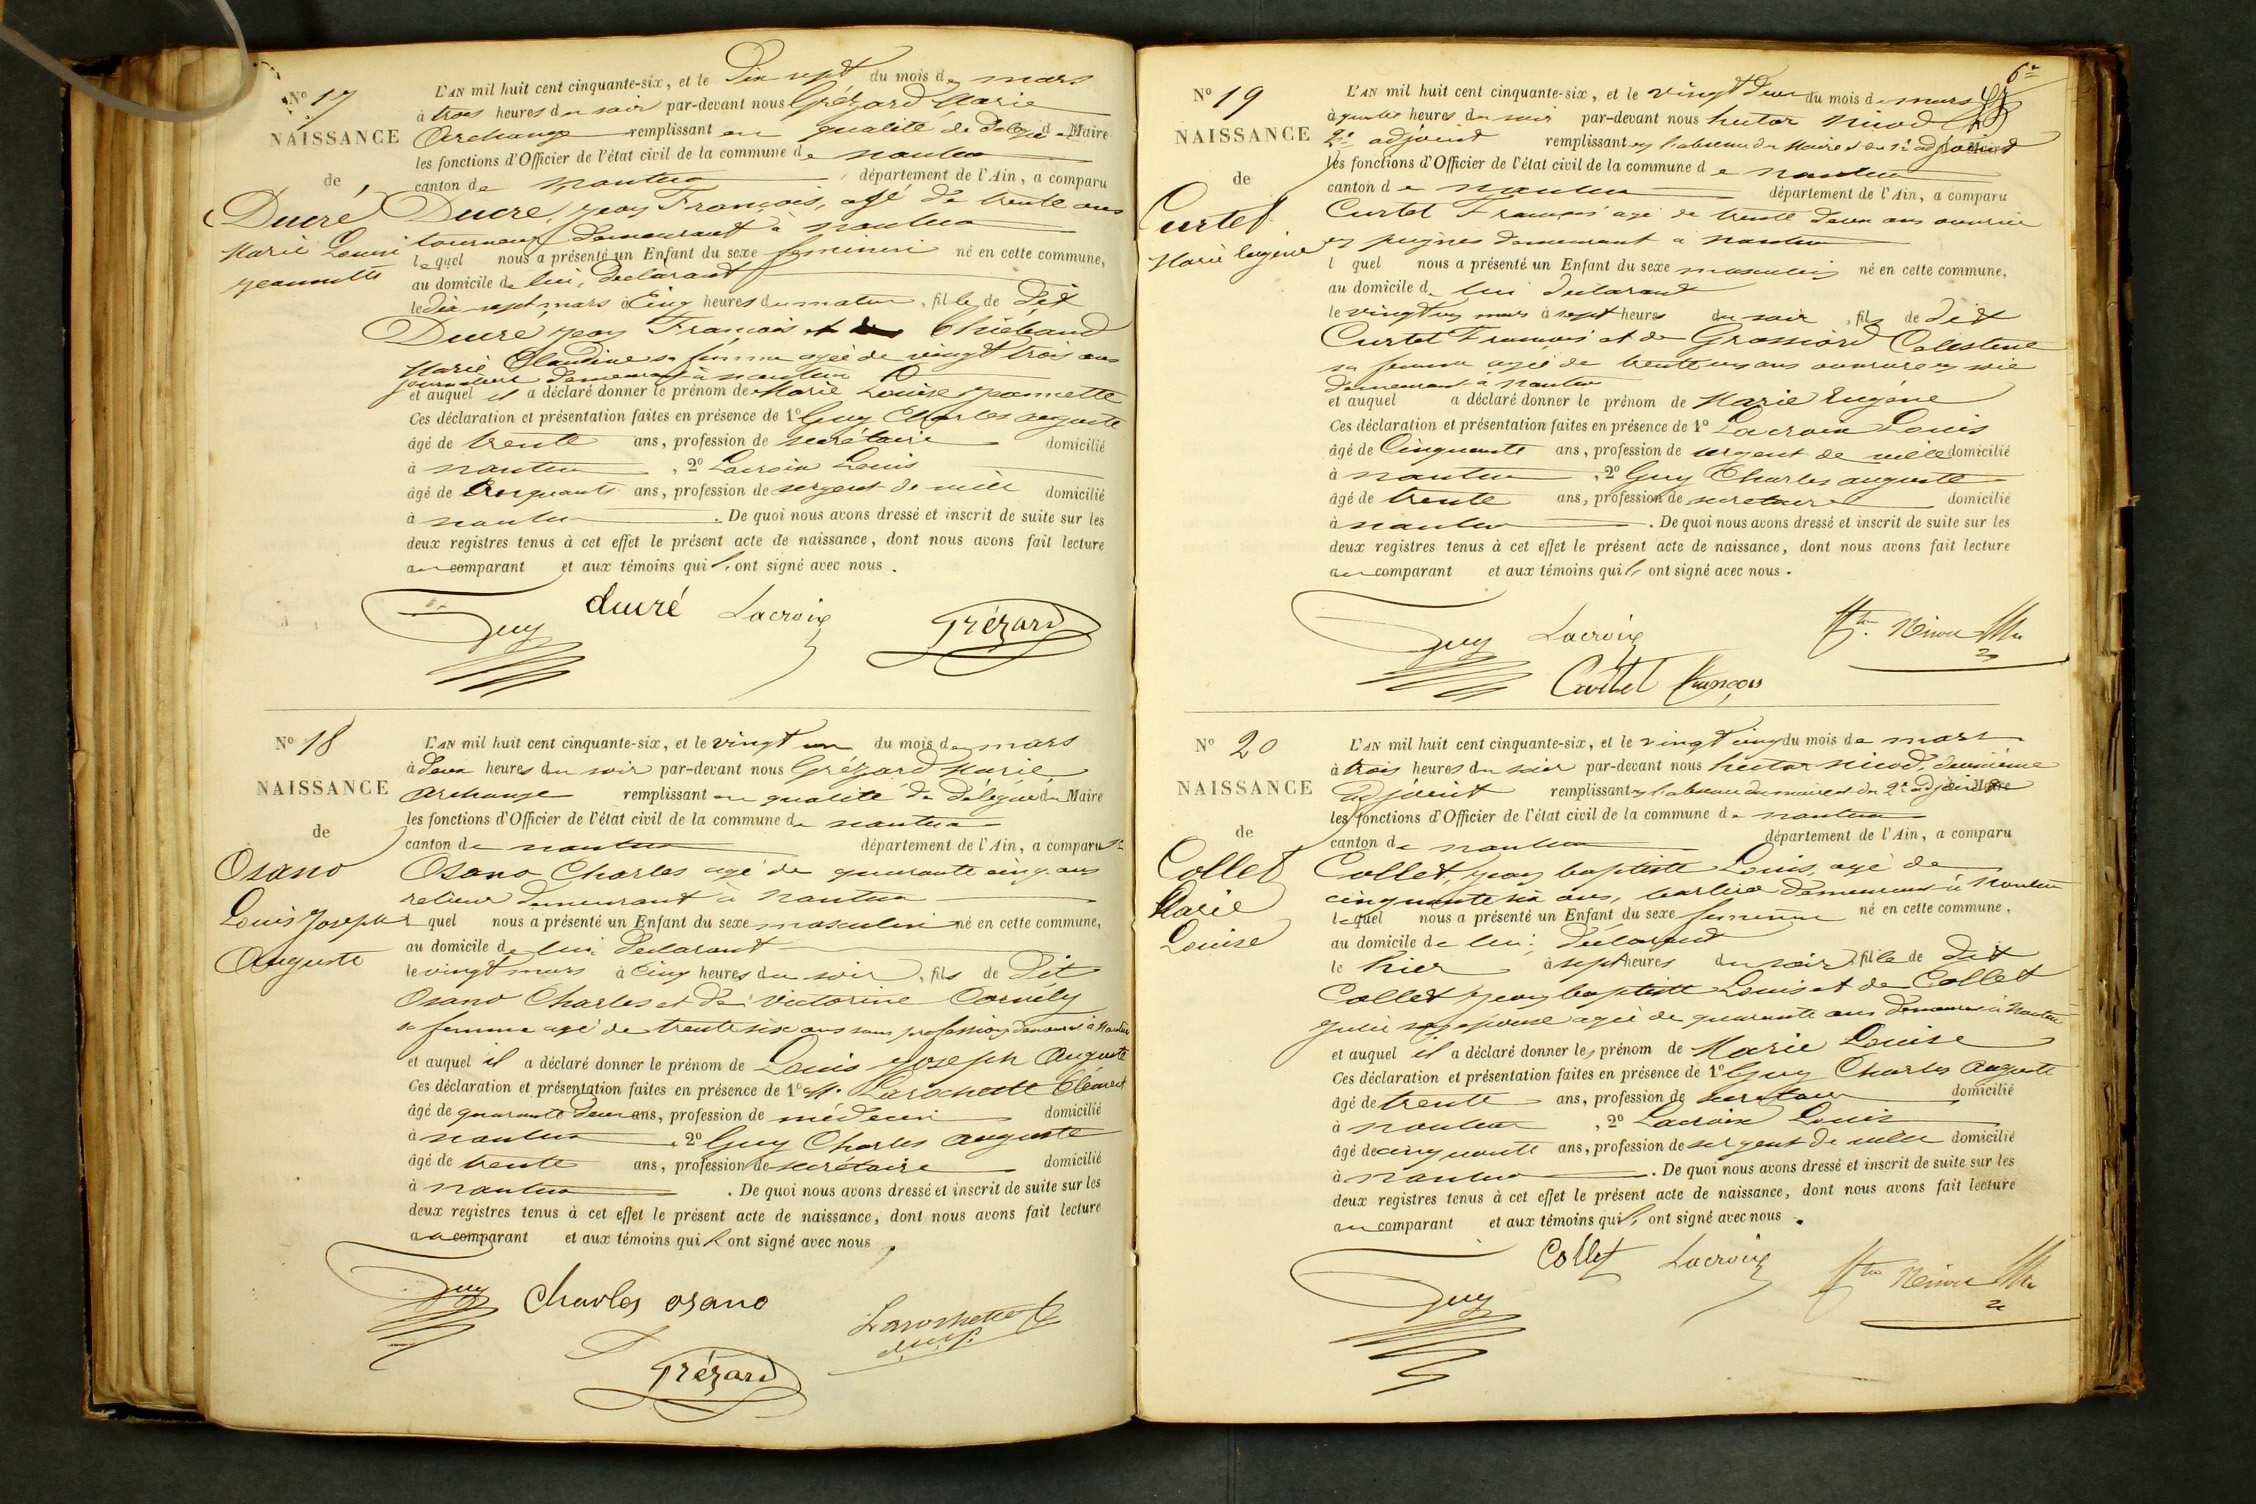 N° 17
NAISSANCE
de
Ducré
Marie Louise
Jeannette
L'AN mil huit cent cinquante-six, et le Dix sept du mois de mars
à trois heures du soir par-devant nous Grézard Marie
Archange remplissant en qualité de délégué du Maire
les fonctions d'Officier de l'état civil de la commune de nantua
canton de nantua département de l'Ain, a comparu
Ducré, Jean François, agé de trente ans
tourneur demeurant à nantua
lequel nous a présenté un Enfant du sexe feminin né en cette commune,
au domicile de lui, declarant
le dix sept mars à Cinq heures du matin, fille de dit
Ducré Jean François et de Thiébaud
Marie Claudine sa femme agée de vingt trois ans
journalière demeurant à nantua
et auquel il a déclaré donner le prénom de Marie Louise Jeannette
Ces déclaration et présentation faites en présence de 1° Guy Charles auguste
âgé de trente ans, profession de secrétaire domicilié
à nantua, 2° Lacroix Louis
âgé de Cinquante ans, profession de sergent de ville domicilié
à nantua. De quoi nous avons dressé et inscrit de suite sur les
deux registres tenus à cet effet le présent acte de naissance, dont nous avons fait lecture
au comparant et aux témoins qui l' ont signé avec nous.
Guy ducré Lacroix Grézard
N° 18
NAISSANCE
de
Osano
Louis Joseph
Auguste
L'AN mil huit cent cinquante-six, et le vingt un du mois de mars
à deux heures du soir par-devant nous Grézard Marie
Archange remplissant en qualité de délégué du Maire
les fonctions d'Officier de l'état civil de la commune de nantua
canton de nantua département de l'Ain, a comparu Sr
Osano Charles agé de quarante cinq ans
relieur demeurant à nantua
quel nous a présenté un Enfant du sexe masculin né en cette commune,
au domicile de lui declarant
le vingt mars à Cinq heures du soir, fils de dit
Osano Charles et de victorine Carvély
sa femme agé de trente six ans sans profession demeurant à Nantua
et auquel il a déclaré donner le prénom de Louis Joseph Auguste
Ces déclaration et présentation faites en présence de 1° Mr. Larochette Clément
âgé de quarante deux ans, profession de médecin domicilié
à nantua, 2° Guy Charles auguste
âgé de trente ans, profession de secrétaire domicilié
à nantua. De quoi nous avons dressé et inscrit de suite sur les
deux registres tenus à cet effet le présent acte de naissance, dont nous avons fait lecture
au comparant et aux témoins qui l' ont signé avec nous
Guy Charles osano Larochette
Grézard
N° 19
NAISSANCE
de
Curtet
Marie Eugène
L'AN mil huit cent cinquante-six, et le vingt deux du mois de mars
à quatre heures du soir par-devant nous hector Nicod
2e adjoint remplissant en l'absence du Maire et du 1er adjoint
les fonctions d'Officier de l'état civil de la commune de nantua
canton de nantua département de l'Ain, a comparu
Curtet François agé de trente deux ans ouvrier
en peignes demeurant à nantua
l quel nous a présenté un Enfant du sexe masculin né en cette commune,
au domicile de lui declarant
le vingt un mars à sept heures du soir, fils de dit
Curtet François et de Grossiord Celestine
sa femme agée de trente un ans ouvrière en soie
demeurant à nantua
et auquel a déclaré donner le prénom de Marie Eugène
Ces déclaration et présentation faites en présence de 1° Lacroix Louis
âgé de Cinquante ans, profession de sergent de ville domicilié
à nantua, 2° Guy Charles auguste
âgé de trente ans, profession de secretaire domicilié
à nantua. De quoi nous avons dressé et inscrit de suite sur les
deux registres tenus à cet effet le présent acte de naissance, dont nous avons fait lecture
au comparant et aux témoins qui l' ont signé avec nous.
Guy Lacroix
Curtet françois
N° 20
NAISSANCE
de
Collet
Marie
Louise
L'AN mil huit cent cinquante-six, et le vingt cinq du mois de mars
à trois heures du soir par-devant nous hector Nicod, deuxième
adjoint remplissant en l'absence du maire et du 2e adjoint
les fonctions d'Officier de l'état civil de la commune de nantua
canton de nantua département de l'Ain, a comparu
Collet, Jean baptiste Louis, agé de
cinquante six ans, demeurant à Nantua
lequel nous a présenté un Enfant du sexe feminin né en cette commune,
au domicile de lui declarant
le hier à sept heures du soir, fille de dit
Collet Jean baptiste Louis et de Collet
Julie son épouse agée de quarante ans demeurant à Nantua
et auquel il a déclaré donner les prénom de Marie Louise
Ces déclaration et présentation faites en présence de 1° Guy Charles auguste
âgé de trente ans, profession de secretaire domicilié
à nantua, 2° Lacroix Louis
âgé de cinquante ans, profession de sergent de ville domicilié
à nantua. De quoi nous avons dressé et inscrit de suite sur les
deux registres tenus à cet effet le présent acte de naissance, dont nous avons fait lecture
au comparant et aux témoins qui l' ont signé avec nous.
Guy Collet Lacroix